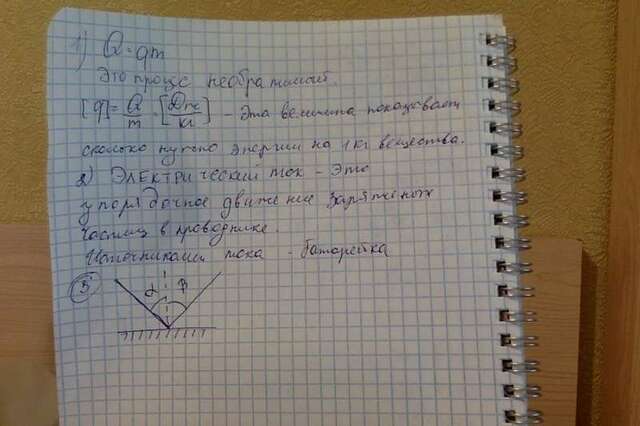 1) Q = qm
Это процес необратимый.
[q] = Q/m [Дж/кг] - Эта величина показывает
сколько нужно энергии на 1 кг вещества.
2) Электрический ток - Это
упорядочное движение заряженых
частиц в проводнике.
Источниками тока - батарейка
3) α β